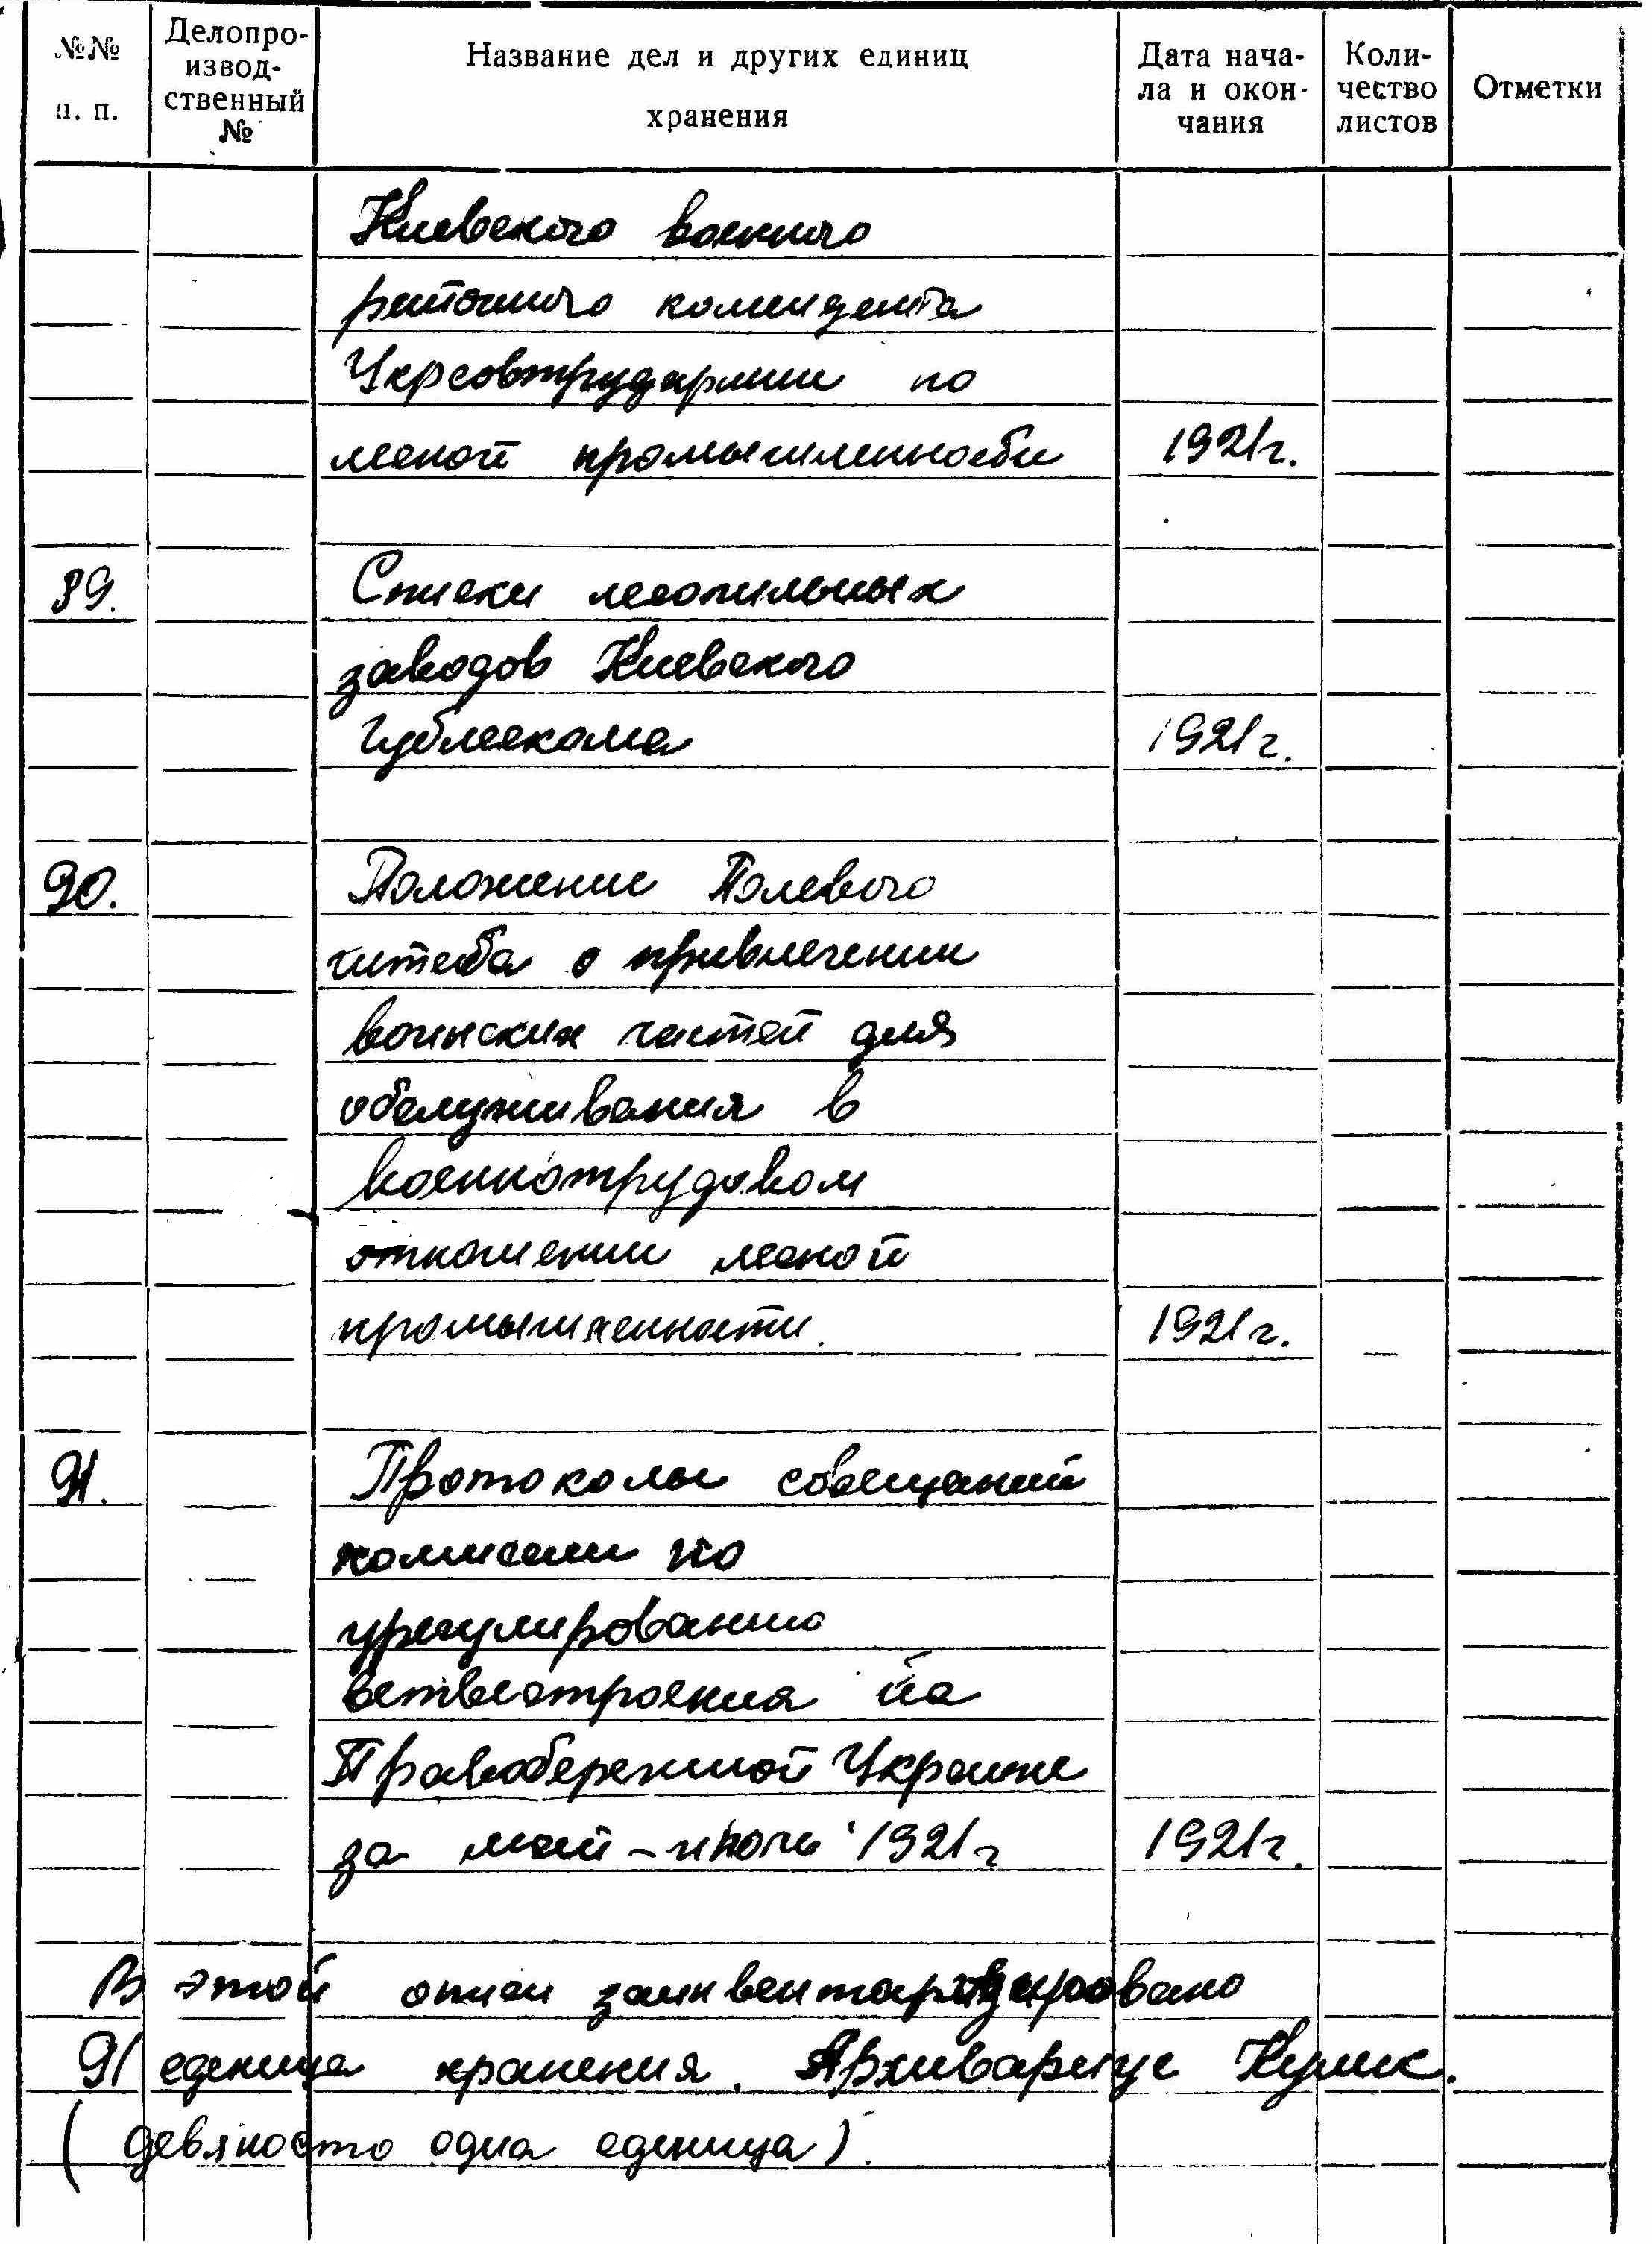 №№ п. п.
Делопро-
извод-
ственный
№
Название дел и других единиц
хранения
Дата нача-
ла и окон-
чания
Коли-
чество
листов
Отметки
Киевского военного
районного коменданта
Укрсовтрудармии по
лесной промышленности 1921г.
89. Списки лесопильных
заводов Киевского
Гублескома 1921г.
90. Положение Полевого
штаба о привлечении
воинских частей для
обслуживания в
военнотрудовом
отношении лесной
промышленности. 1921г.
91. Протоколы совещаний
комиссии по
урегулированию
ветвестроения на
Правобережной Украине
за май - июнь 1921г 1921г.
В этой описи заинвентаризировано
91 еденица хранения. Архивариус Кулик.
(девяносто одна еденица).